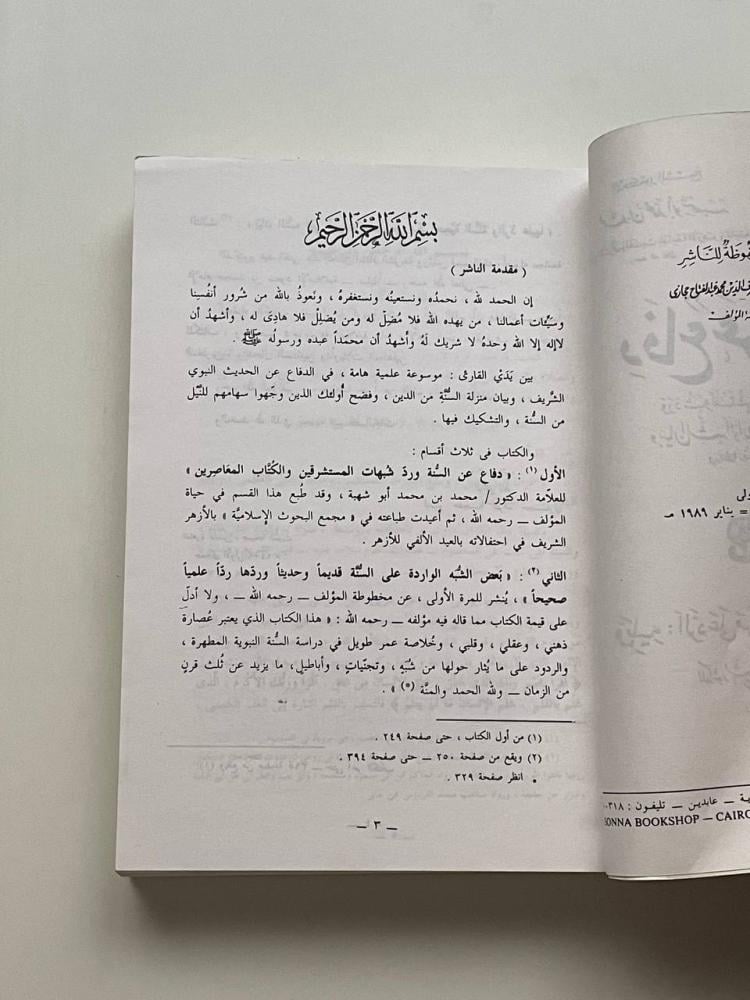 بِسْمِ اللَّهِ الرَّحْمَٰنِ الرَّحِيمِ
( مقدمة الناشر )
إن الحمد لله ، نحمدُه ونستعينُه ونستغفرُه ، ونَعوذُ بالله من شرور أنفُسِنا
وسَيِّئات أعمالنا ، من يهده الله فلا مُضِلّ له ومن يُضلِلْ فلا هادِىَ له ، وأشهدُ أن
لاإله إلا الله وحدهُ لا شريك لَهُ وأشهدُ أن محمّداً عبده ورسولُه ﷺ .
بين يَدَيْ القارئ : موسوعة علمية هامة ، في الدفاع عن الحديث النبوي
الشَّريف ، وبيان منزلة السنَّةِ من الدين ، وفضح أُولئك الذين وجّهوا سهامهم للنَّيل
من السنَّة ، والتشكيك فيها .
والكتاب فى ثلاث أقسام :
الأول (١) : « دفاع عن السنة وردّ شبهات المستشرقين والكُتَّاب المعَاصِرين »
للعلاّمة الدكتور / محمد بن محمد أبو شهبة ، وقد طُبع هذا القسم في حياة
المؤلف ـــ رحمه الله ، ثم أعيدت طباعته في « مجمع البحوث الإسلاميَّة » بالأزهر
الشريف في احتفالاته بالعيد الألفي للأزهر .
الثاني (٢) : « بَعض الشُبه الواردة على السنَّة قديماً وحديثاً وردّها ردّاً علمياً
صحيحاً » ، يُنشر للمرة الأولى ، عن مخطوطة المؤلف ـــ رحمه الله ـــ ، ولا أدلّ
على قيمة الكتاب مما قاله فيه مؤلفه ـــ رحمه الله : « هذا الكتاب الذي يعتبر عُصارة
ذهني ، وعقلي ، وقلبي ، وخُلاصة عمر طويل في دراسة السنَّة النبوية المطهرة ،
والردود على ما يُثار حولها من شبَهٍ ، وتجنّياتٍ ، وأباطيل، ما يزيد عن ثُلث قرنٍ
من الزمان ـــ ولله الحمد والمنَّة (*) » .
(١) من أول الكتاب ، حتى صفحة ٢٤٩ .
(٢) ويقع من صفحة ٢٥٠ ـــ حتى صفحة ٣٩٤ .
* انظر صفحة ٣٢٩ .
ـــ ٣ ـــ
للنَاشِر
= يناير ١٩٨٩ مـ
ـــ عابدين ـــ تليفون :
BOOKSHOP — CAIRO